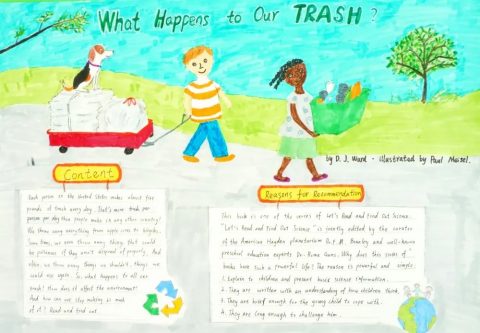 What Happens to Our TRASH?
by D. J. Ward - illustrated by Paul Meisel.
Content
Each person in the United States makes about five
pounds of trash every day. That's more trash per
person per day than people make in any other country!
We throw away everything from apple cores to bicycles.
Sometimes we even throw away things that could
be poisonous if they aren't disposed of properly. And
often we throw away things we shouldn't, things we
could use again. So what happens to all our
trash? How does it affect the environment?
And how can we stop making so much
of it? Read and find out.
Reasons for Recommendation
This book is one of the series of Let's Read and Find Out Science.
"Let's Read and Find Out Science" is jointly edited by the curator
of the American Hayden planetarium Dr. F. M. Branley and well-known
preschool education experts Dr. Roma Gans. Why does this series of
books have such a powerful life? The reason is powerful and simple:
1. Explain to children and present basic science information.
2. They are written with an understanding of how children think.
3. They are brief enough for the young child to cope with.
4. They are long enough to challenge him.